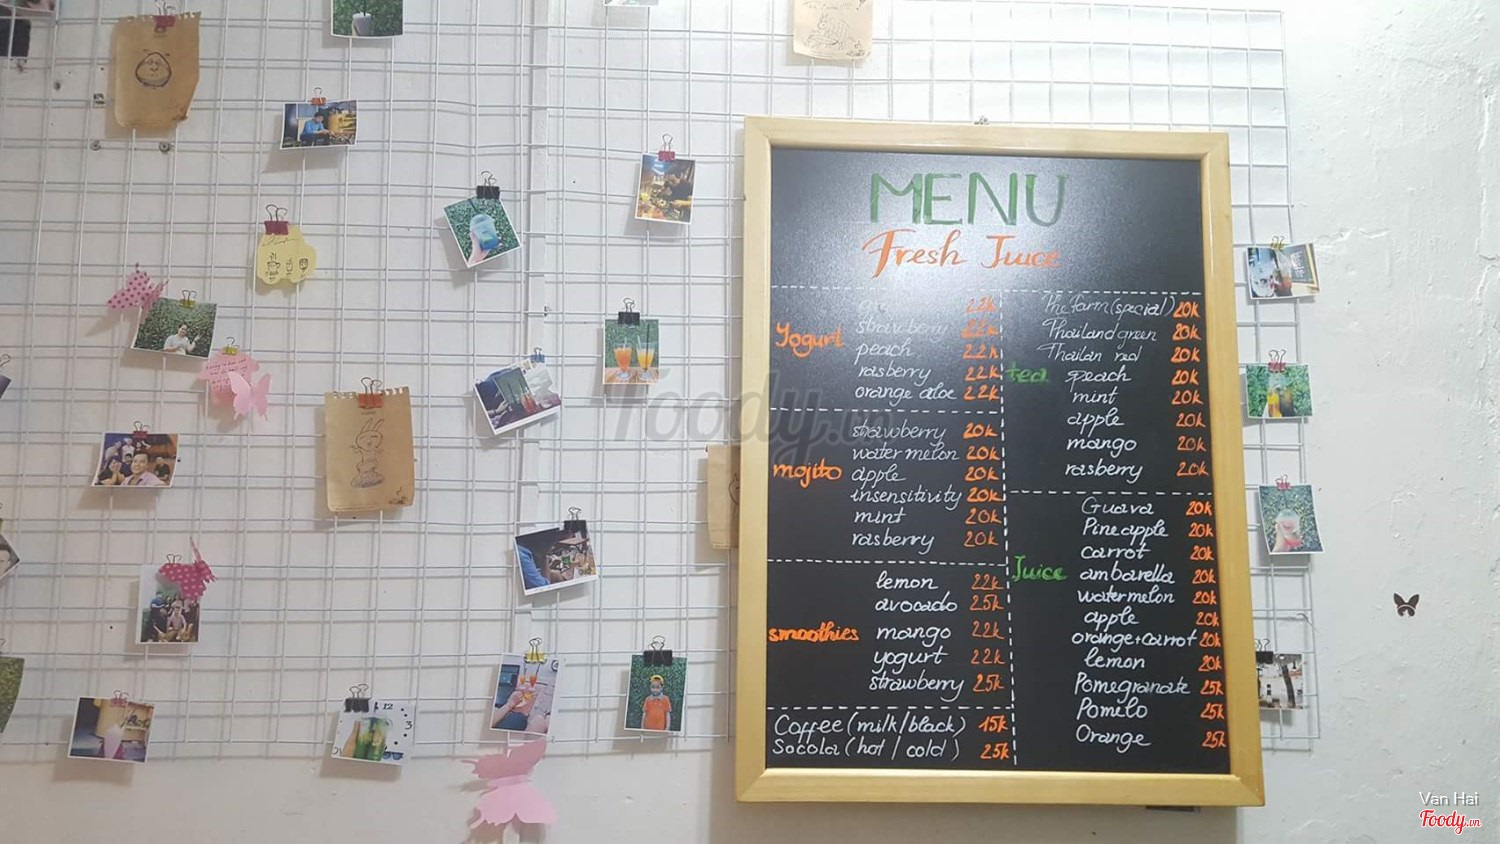 MENU
Fresh Juice
Yogurt
22k
strawberry 22k
peach 22k
rasberry 22k
orange aloe 22k
mojito
strawberry 20k
water melon 20k
apple 20k
insensitivity 20k
mint 20k
rasberry 20k
smoothies
lemon 22k
avocado 25k
mango 22k
yogurt 22k
strawberry 25k
Coffee (milk/black) 15k
Socola (hot / cold) 25k
tea
The Farm (special) 20k
Thailand green 20k
Thailan red 20k
peach 20k
mint 20k
apple 20k
mango 20k
rasberry 20k
Juice
Guava 20k
Pineapple 20k
carrot 20k
ambarella 20k
watermelon 20k
apple 20k
orange+carrot 20k
lemon 20k
Pomegranate 25k
Pomelo 25k
Orange 25k
12
3
Foody.vn
Van Hai
Foody.vn